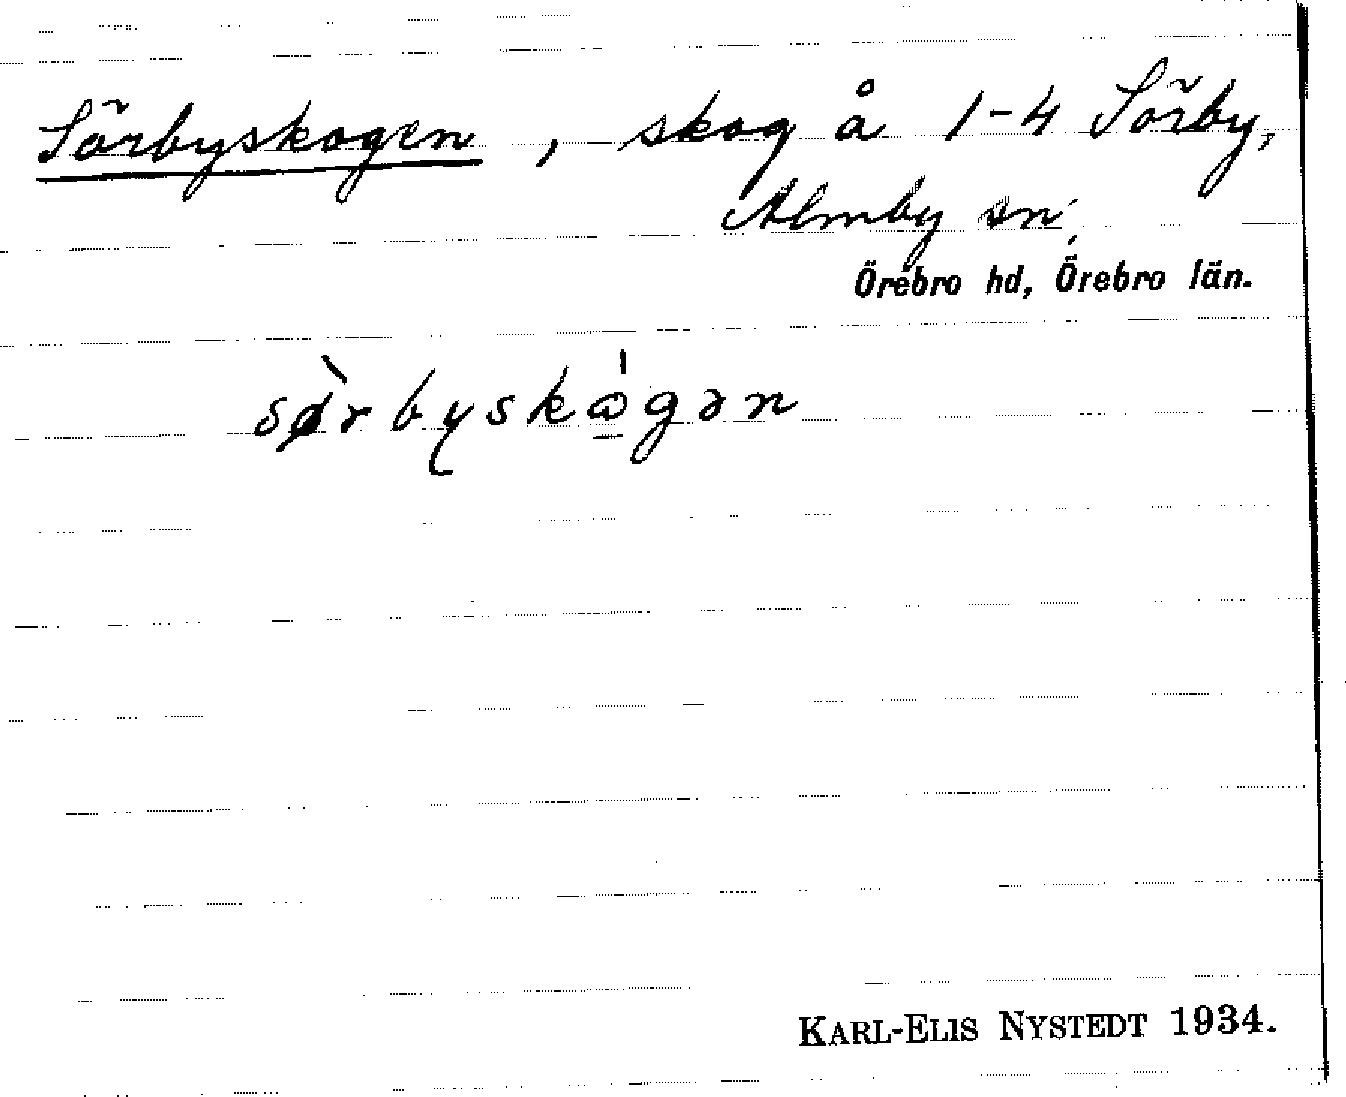 Sörbyskogen, skog å 1-4 Sörby,
Almby sn,
Örebro hd, Örebro län.
sø̀rbyskɷ̠́gən
KARL-ELIS NYSTEDT 1934.